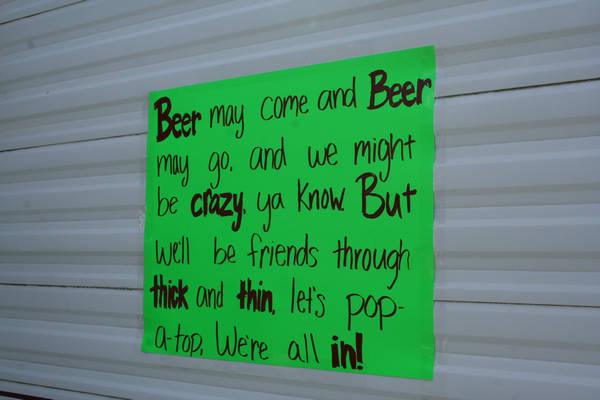 Beer may come and Beer
may go, and we might
be crazy, ya know. But
we'll be friends through
thick and thin, let's pop-
a-top, We're all in!